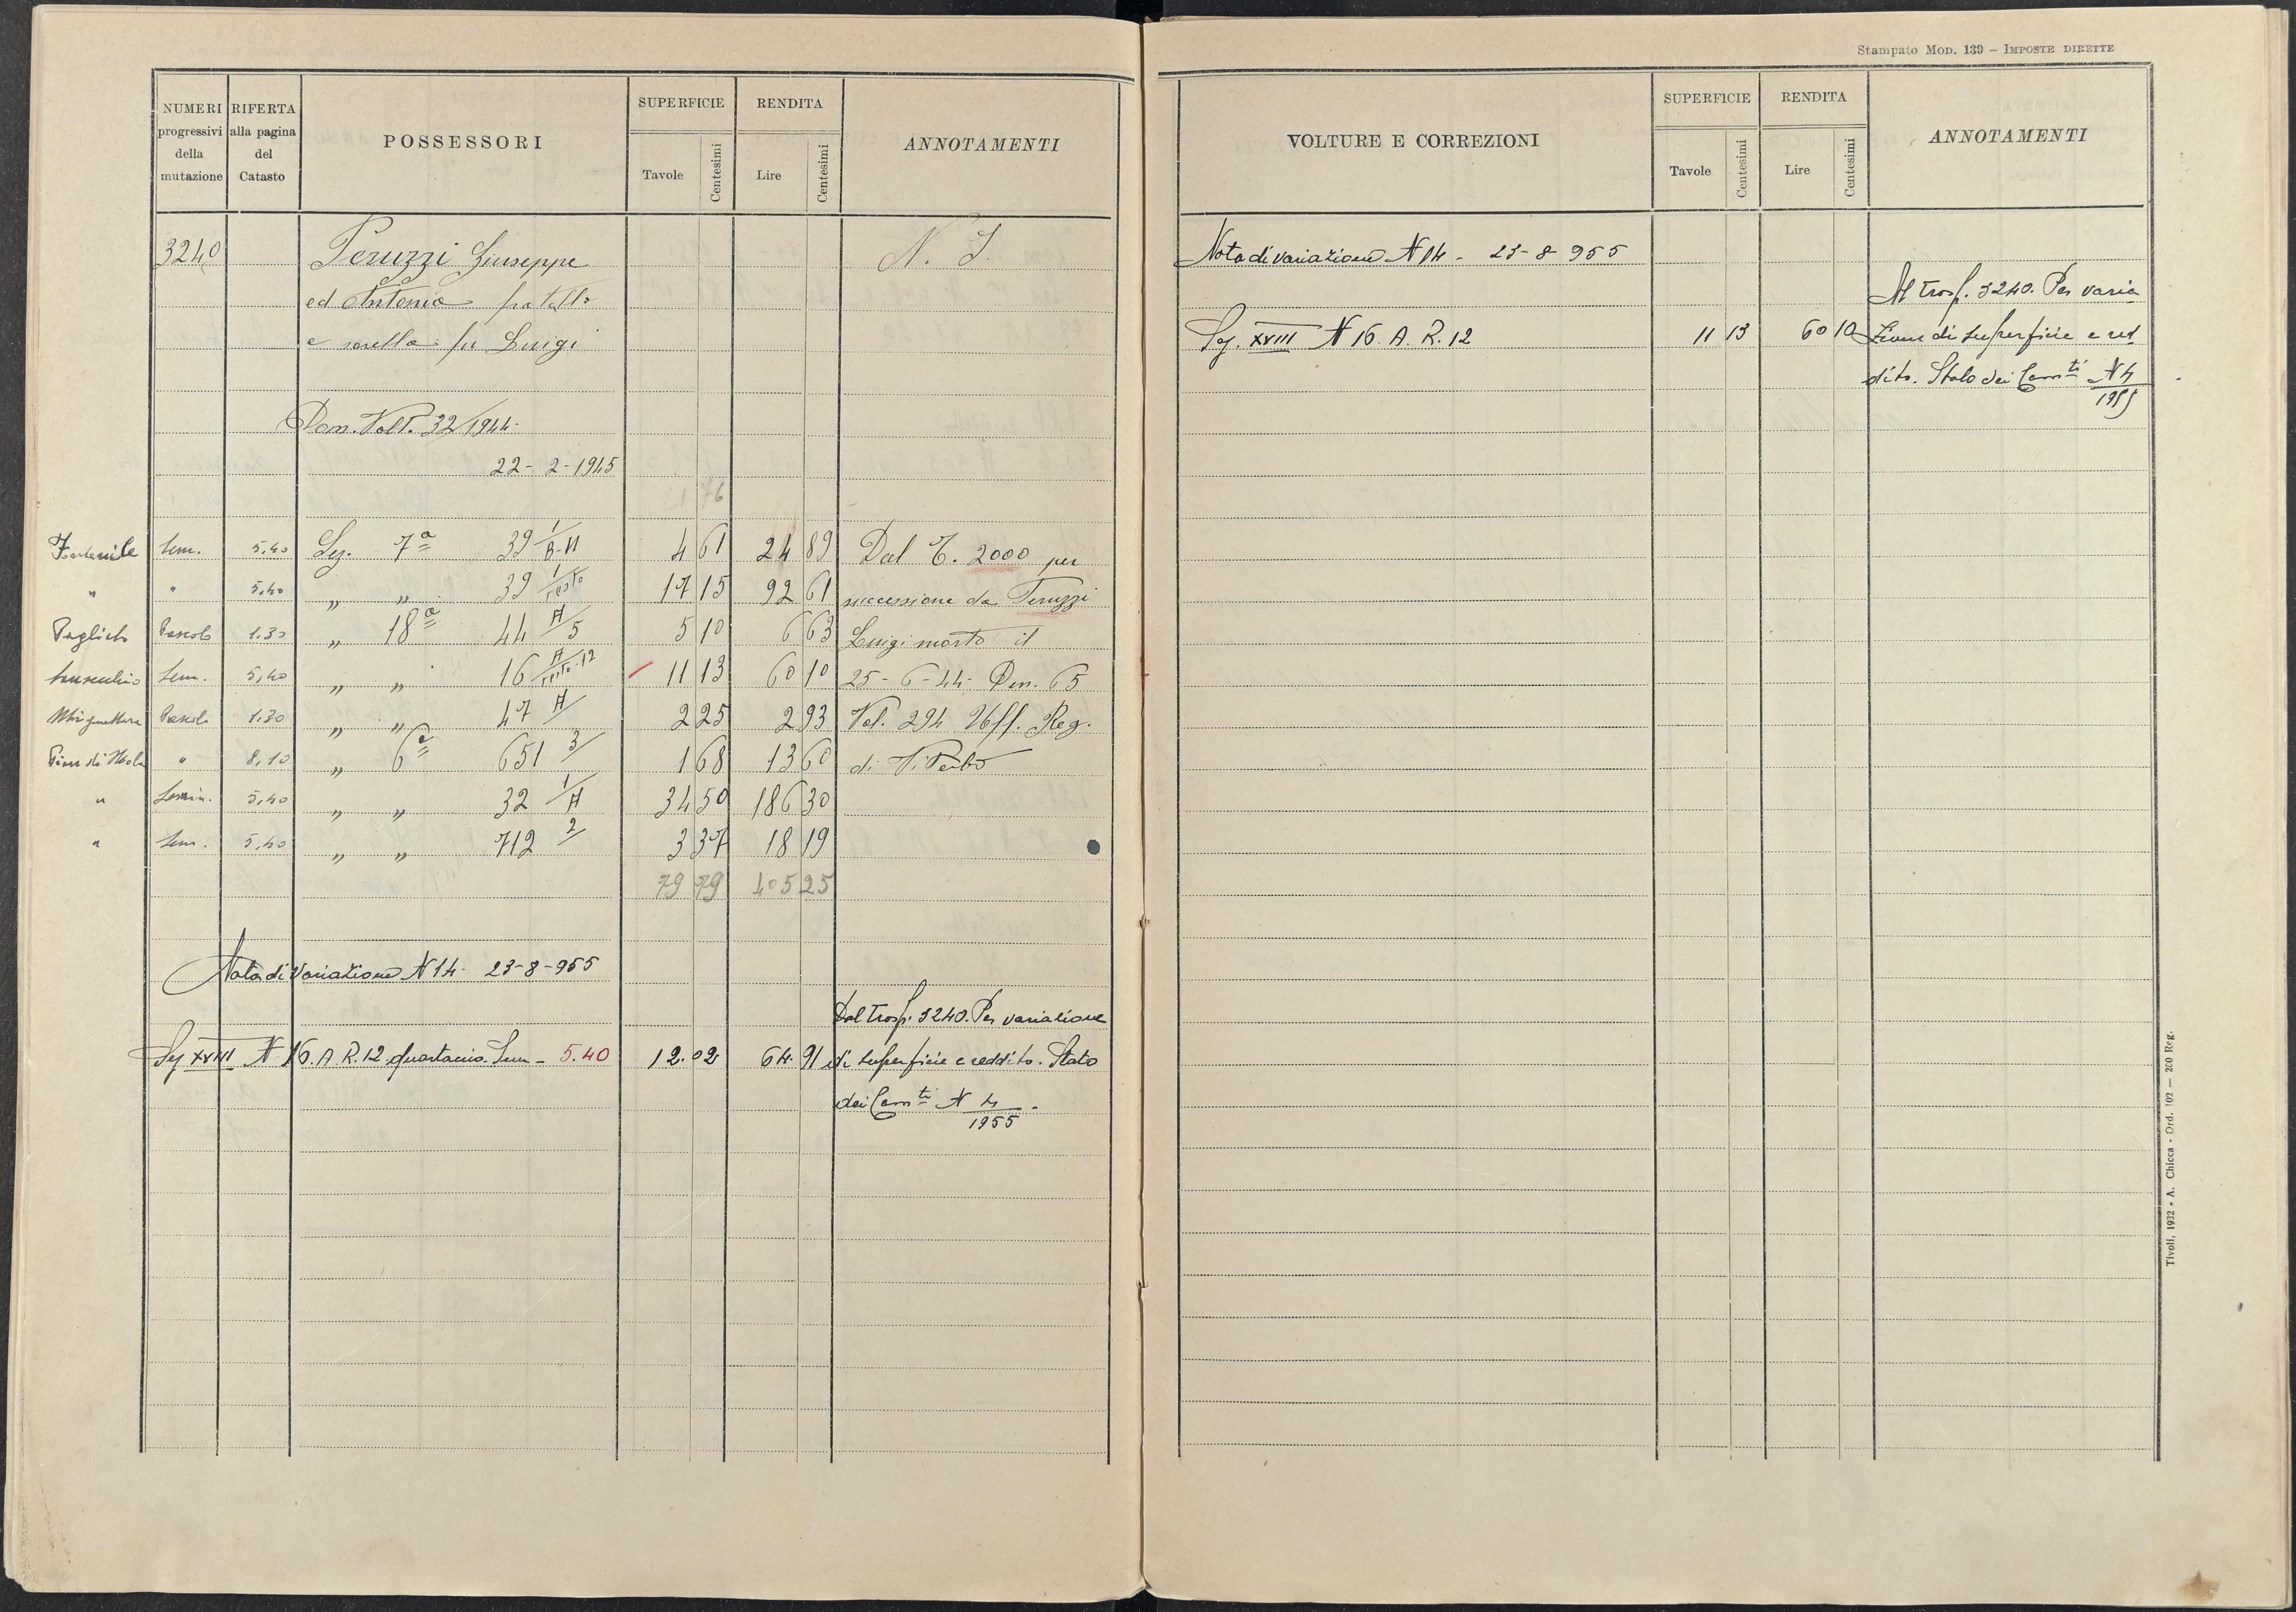 NUMERI progressivi della mutazione | RIFERTA alla pagina del Catasto | POSSESSORI | SUPERFICIE Tavole Centesimi | RENDITA Lire Centesimi | ANNOTAMENTI
3240 Peruzzi Giuseppe N. I.
ed Antonia fratello
e sorella fu Luigi
Dom. Volt. 32/1944
22-2-1945
Sem. 5,40 Sez. 7ª 39 1/B-11 4 61 24 89 Dal T. 2000 per
" " 5,40 " " 39 1/resto 17 15 92 61 successione da Peruzzi
Pascolo 1.30 " 18ª 44 A/5 5 10 6 63 Luigi morto il
Sem. 5,40 " " 16 A/resto.12 11 13 60 10 25-6-44- Den. 65
Pascolo 1.30 " " 47 A/ 2 25 2 93 Vol. 294 Uff. Reg.
" 8,10 " 6ª 651 3/ 1 68 13 60 di Viterbo
" Semin. 5,40 " " 32 1/A 34 50 186 30
" Sem. 5,40 " " 712 2/ 3 37 18 19
79 79 405 25
Nota di Variazione N 14- 23-8-955
Dal trasf. 3240. Per variazione
Sez XVIII N 16. A. R. 12 Sem - 5.40 12.02 64.91 di superficie e reddito. Stato
dei Cam ti N 4/1955.
Stampato Mod. 139 – IMPOSTE DIRETTE
VOLTURE E CORREZIONI | SUPERFICIE Tavole Centesimi | RENDITA Lire Centesimi | ANNOTAMENTI
Nota di variazione N 14 - 23-8-955
Al trasf. 3240. Per varia
Sez. XVIII N 16. A. R. 12 11 13 60 10 zione di superficie e red
dito. Stato dei Cam ti N 4/1955
Tivoli, 1932 • A. Chicca • Ord. 102 — 200 Reg.